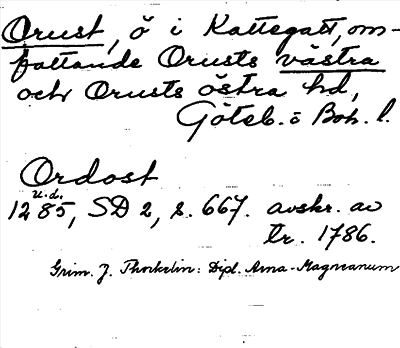 Orust, ö i Kattegatt, om-
fattande Orusts västra
och Orusts östra hd,
Göteb. o Boh. l.
Ordost
u.d.
1285, SD 2, s. 667. avskr. av
tr. 1786.
Grim. J. Thorkelin: Dipl. Arna-Magneanum